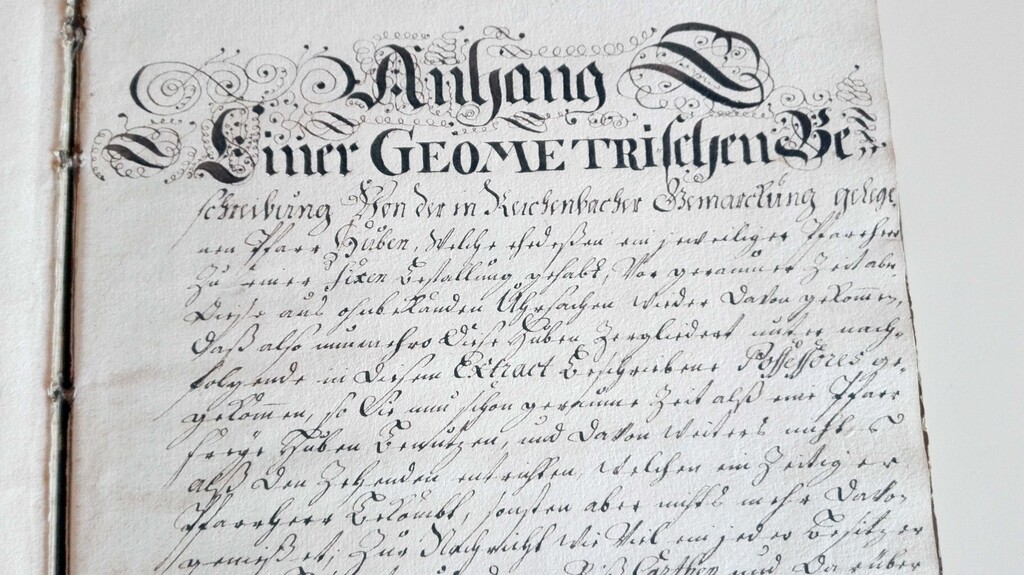 Anhang
Einer GEOMETRischen Be-
schreibung Von der in Reichenbacher Gemarckung gelege-
nen Pfarr Huben, Welche ehedeßen ein jeweiliger Pfarrherr
Zu einer fixen Bestallung gehabt, Vor geraumer Zeit aber
Diese aus ohnbekanden Uhrsachen wieder davon gekommen,
Daß also nunmehro Diese Huben Zergliedert unter nach-
folgende in Diesem Extract Beschriebene Possessores ge-
gekommen, so Sie nun schon geraume Zeit alß eine Pfarr
freye Huben Benutzen, und davon Weiters nichts
alß Den Zehenden entrichten, Welchen ein Zeitiger
Pfarrherr Bekombt, sonsten aber nichts mehr davon
genießet; Zur Nachricht Wie Viel ein jeder Besitzer
Carthen und darüber